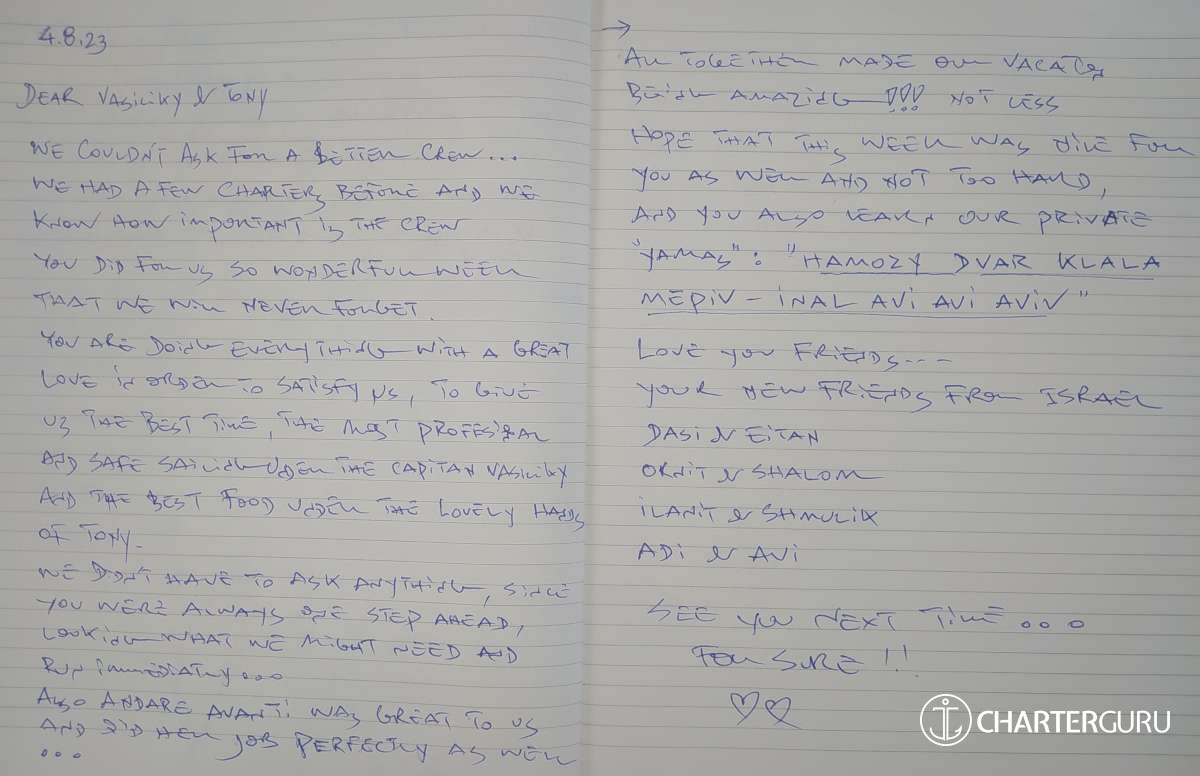 4.8.23
DEAR VASILIKY & TONY
WE COULDN'T ASK FOR A BETTER CREW...
WE HAD A FEW CHARTERS BEFORE AND WE
KNOW HOW IMPORTANT IS THE CREW
YOU DID FOR US SO WONDERFUL WEEK
THAT WE WILL NEVER FORGET.
YOU ARE DOING EVERYTHING WITH A GREAT
LOVE IN ORDER TO SATISFY US, TO GIVE
US THE BEST TIME, THE MOST PROFESIONAL
AND SAFE SAILING UNDER THE CAPITAN VASILIKY
AND THE BEST FOOD UNDER THE LOVELY HANDS
OF TONY.
WE DIDN'T HAVE TO ASK ANYTHING, SINCE
YOU WERE ALWAYS ONE STEP AHEAD,
LOOKING WHAT WE MIGHT NEED AND
RUN IMMEDIATLY...
ALSO ANDARE AVANTI WAS GREAT TO US
AND DID HER JOB PERFECTLY AS WELL
...
→
ALL TOGETHER MADE OUR VACATION
BEING AMAZING !!! NOT LESS
HOPE THAT THIS WEEK WAS NICE FOR
YOU AS WELL AND NOT TOO HARD,
AND YOU ALSO LEARN OUR PRIVATE
"YAMAS": "HAMOZY DVAR KLALA
MEPIV - INAL AVI AVI AVIV"
LOVE YOU FRIENDS---
YOUR NEW FRIENDS FROM ISRAEL
DASI & EITAN
ORNIT & SHALOM
ILANIT & SHMULIK
ADI & AVI
SEE YOU NEXT TIME...
FOR SURE!!
CHARTERGURU